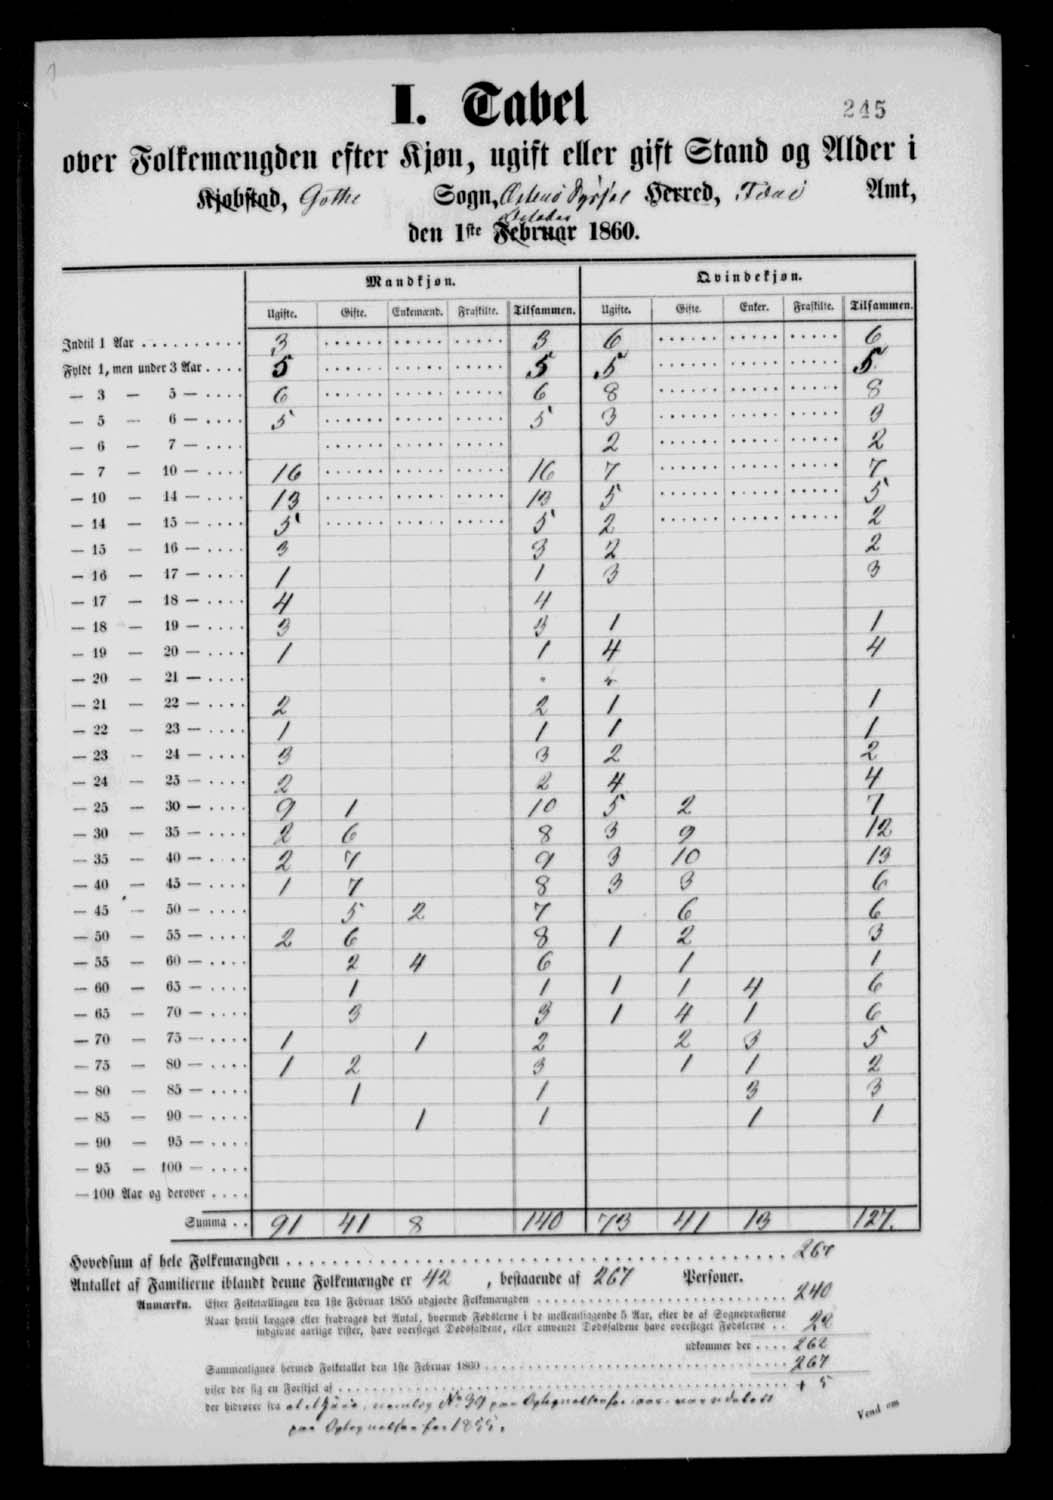 245
I. Tabel
over Folkemængden efter Kjøn, ugift eller gift Stand og Alder i
Kjøbstad, Gøthe Sogn, Østerø Syssel Herred, Færø Amt,
den 1ste Februar 1860.
Oktober
Mandkjøn. Qvindekjøn.
Ugifte. Gifte. Enkemænd. Fraskilte. Tilsammen. Ugifte. Gifte. Enker. Fraskilte. Tilsammen.
Indtil 1 Aar 3 3 6 6
Fyldt 1, men under 3 Aar 5 5 5 5
— 3 — 5 — 6 6 8 8
— 5 — 6 — 5 5 3 3
— 6 — 7 — 2 2
— 7 — 10 — 16 16 7 7
— 10 — 14 — 13 13 5 5
— 14 — 15 — 5 5 2 2
— 15 — 16 — 3 3 2 2
— 16 — 17 — 1 1 3 3
— 17 — 18 — 4 4
— 18 — 19 — 3 3 1 1
— 19 — 20 — 1 1 4 4
— 20 — 21 —
— 21 — 22 — 2 2 1 1
— 22 — 23 — 1 1 1 1
— 23 — 24 — 3 3 2 2
— 24 — 25 — 2 2 4 4
— 25 — 30 — 9 1 10 5 2 7
— 30 — 35 — 2 6 8 3 9 12
— 35 — 40 — 2 7 9 3 10 13
— 40 — 45 — 1 7 8 3 3 6
— 45 — 50 — 5 2 7 6 6
— 50 — 55 — 2 6 8 1 2 3
— 55 — 60 — 2 4 6 1 1
— 60 — 65 — 1 1 1 1 4 6
— 65 — 70 — 3 3 1 4 1 6
— 70 — 75 — 1 1 2 2 3 5
— 75 — 80 — 1 2 3 1 1 2
— 80 — 85 — 1 1 3 3
— 85 — 90 — 1 1 1 1
— 90 — 95 —
— 95 — 100 —
— 100 Aar og derover
Summa 91 41 8 140 73 41 13 127.
Hovedsum af hele Folkemængden 267
Antallet af Familierne iblandt denne Folkemængde er 42, bestaaende af 267 Personer.
Anmærkn. Efter Folketællingen den 1ste Februar 1855 udgjorde Folkemængden 240
Naar hertil lægges eller fradrages det Antal, hvormed Fødslerne i de mellemliggende 5 Aar, efter de af Sognepræsterne
indgivne aarlige Lister, have oversteget Dødsfaldene, eller omvendt Dødsfaldene have oversteget Fødslerne 22
udkommer der 262
Sammenlignes hermed Folketallet den 1ste Februar 1860 267
viser der sig en Forskjel af + 5
der hidrører fra at et Huus, nemlig No 39 paa
paa for 1855.
Vend om